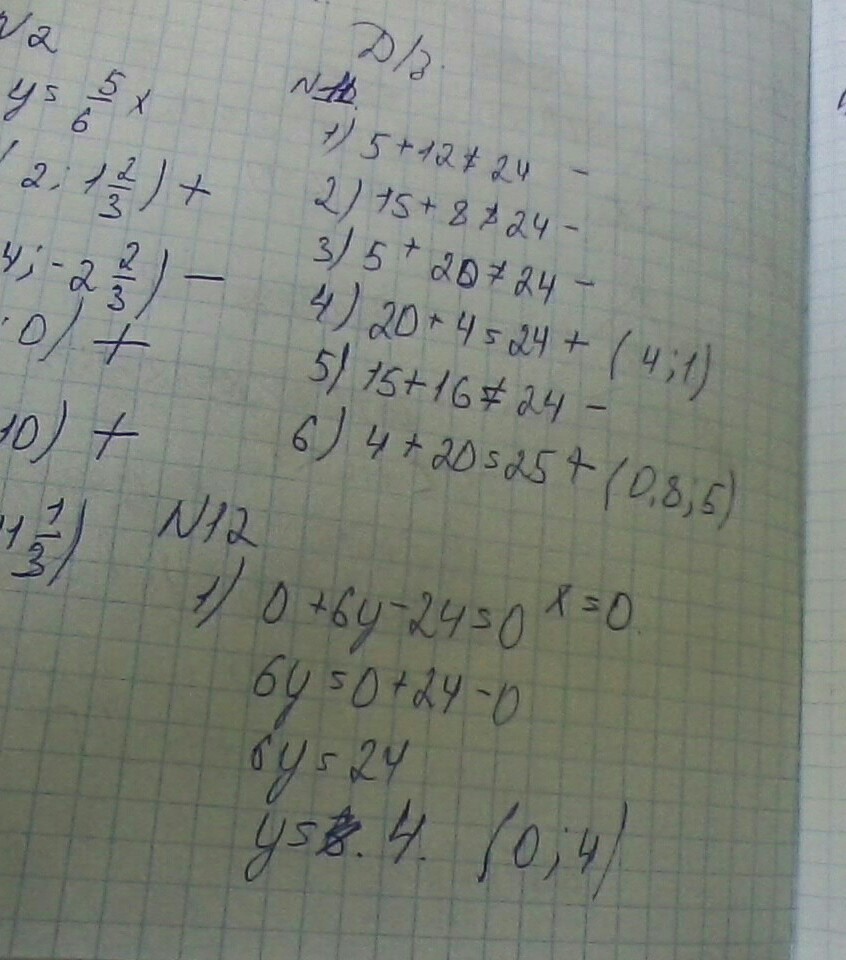 N2
y = 5/6 x
2; 1 2/3) +
4; -2 2/3) —
; 0) +
10) +
1 1/3)
Д/з.
N11.
1) 5 + 12 ≠ 24 -
2) 15 + 8 ≠ 24 -
3) 5 + 20 ≠ 24 -
4) 20 + 4 = 24 + (4; 1)
5) 15 + 16 ≠ 24 -
6) 4 + 20 = 25 + (0,8; 5)
N12
1) 0 + 6y - 24 = 0 x = 0
6y = 0 + 24 - 0
6y = 24
y = 4. (0; 4)